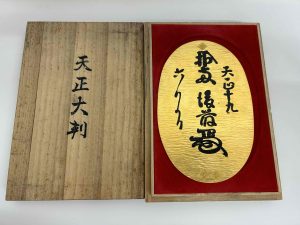 天正大判
天正十九
拾両後藤
六月日